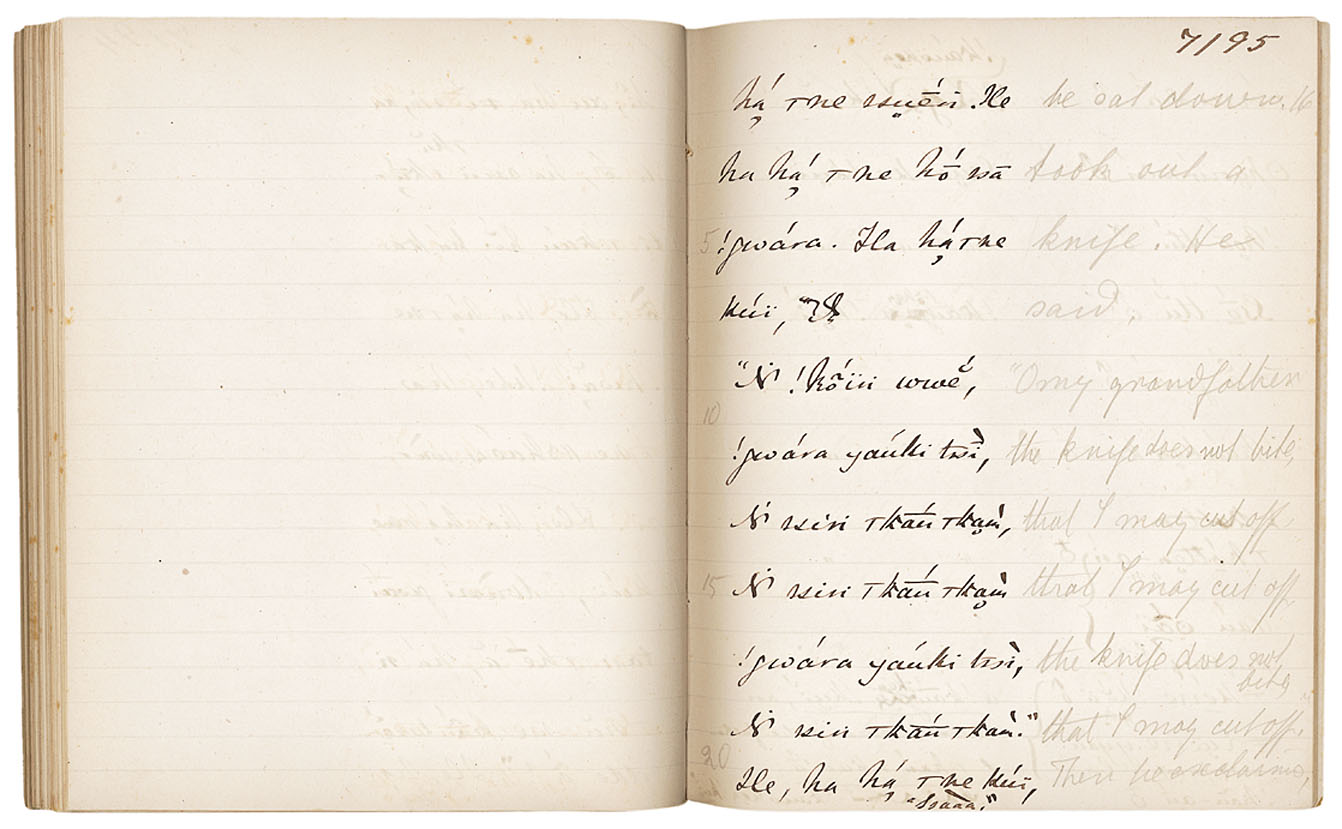 7195
hą́ тne ssu̜ḗn. He he sat down. 16
ha hą́ тne hṓ ssā took out a
5 !gwára. Ha hą́ тne knife. He
kúï, said,
"Ń !kṓïn wwḗ, "O my grandfather
10
!gwára yaúki tssì̄, the knife does not bite,
Ń ssin тkā́ń тka̜ǹ, that I may cut off
15 Ń ssin тkā́ń тka̜ǹ that I may cut off,
!gwára yaúki tssì̄, the knife does not bite
Ń ssin тkā́ń тkaǹ." that I may cut off."
20
He, ha hą́ тne kúï, Then he exclaims,
"Ssāāā,"